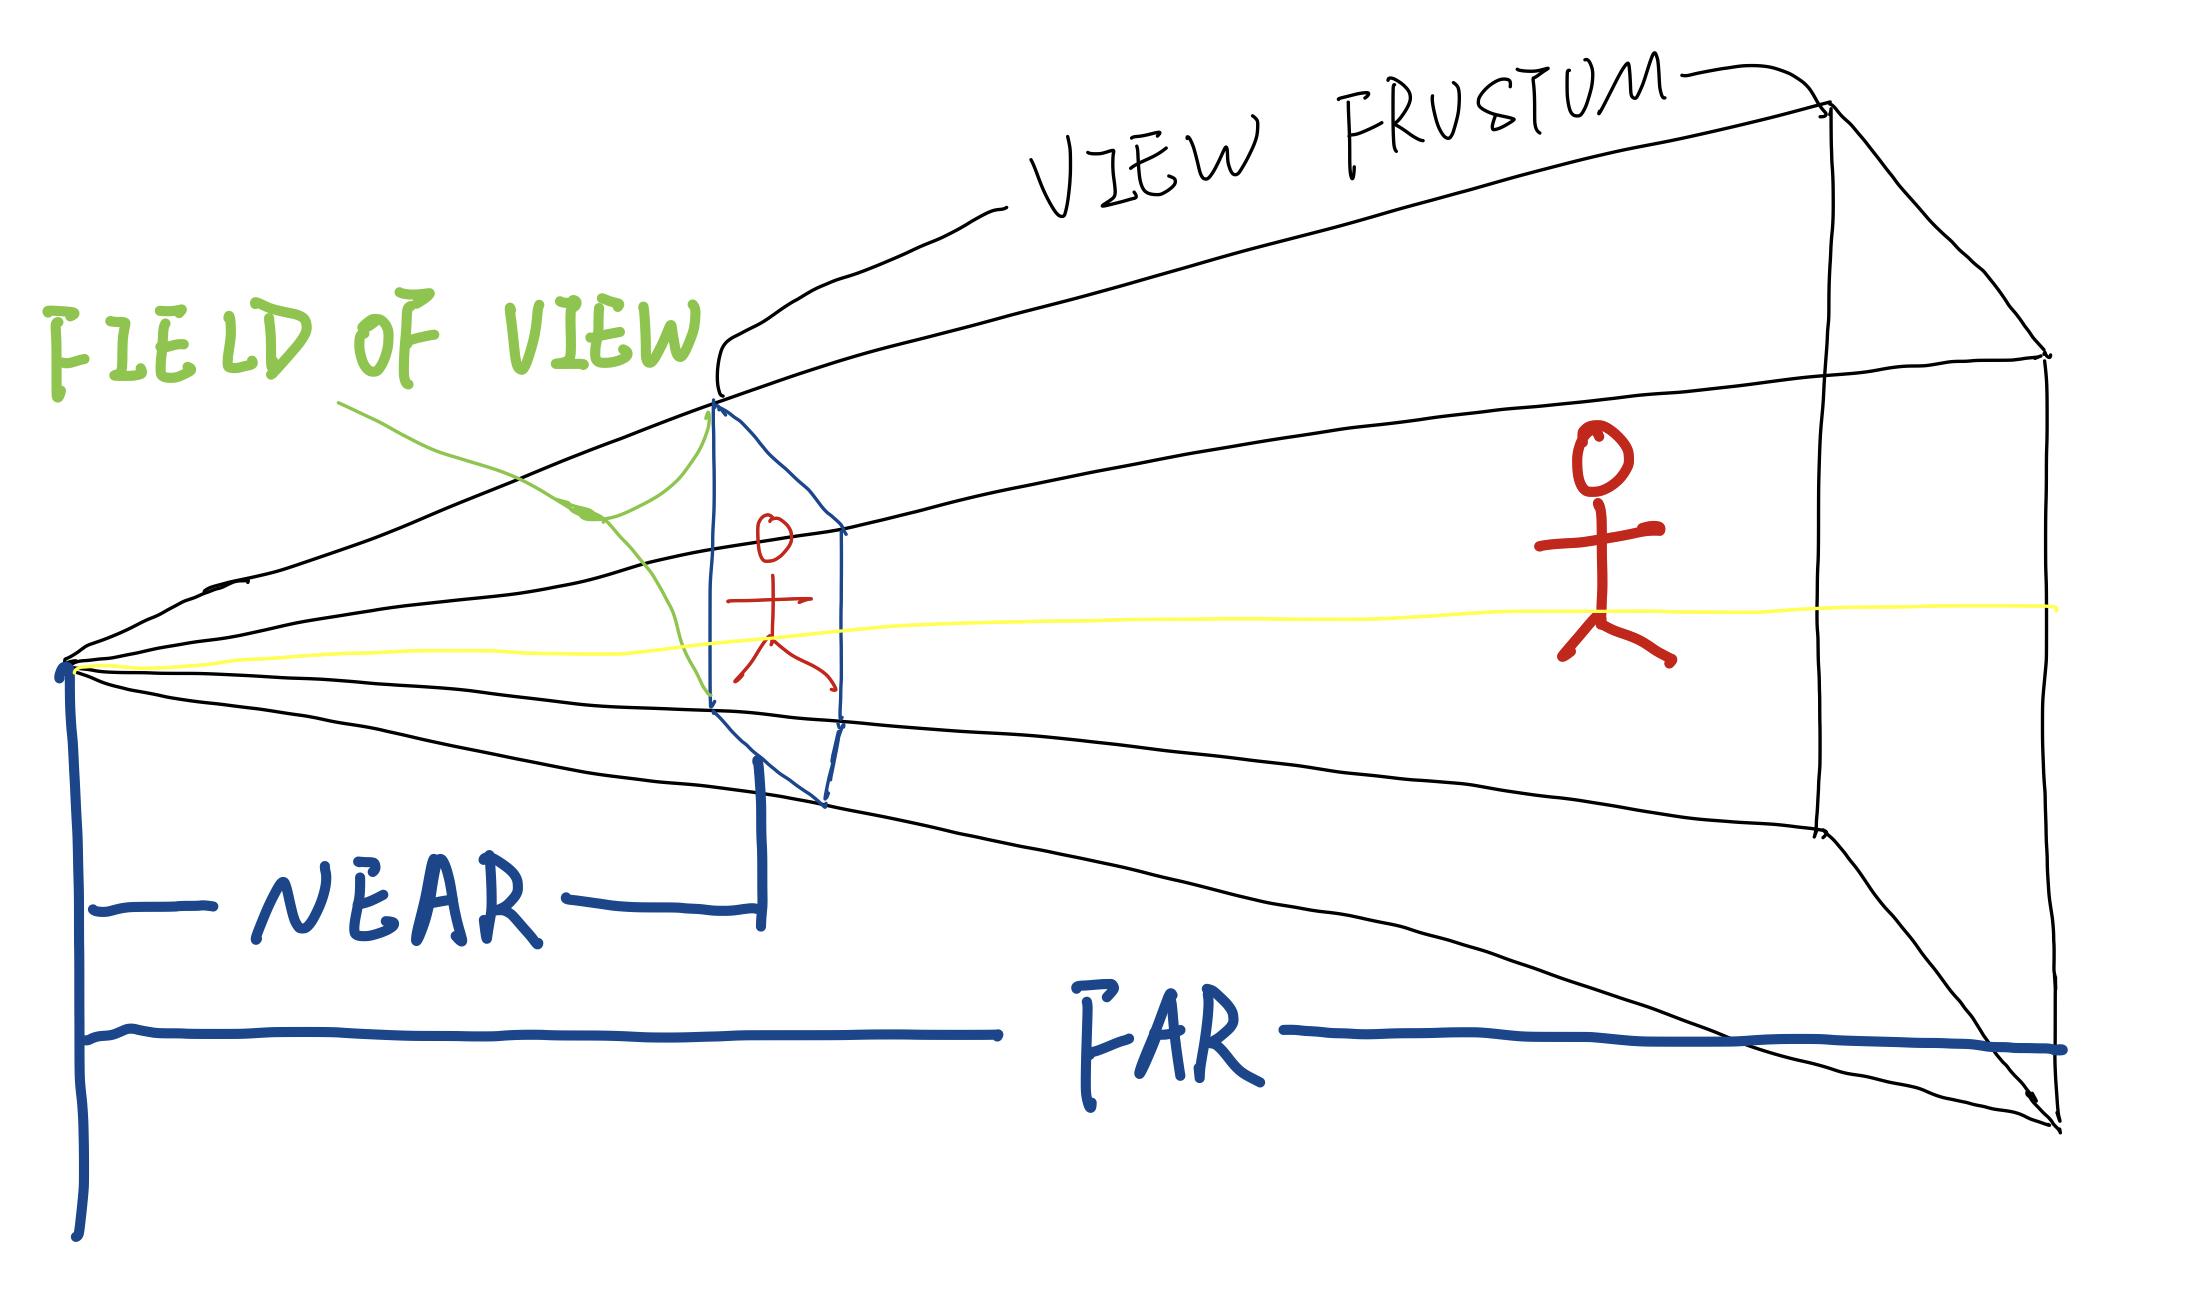 VIEW FRUSTUM
FIELD OF VIEW
NEAR
FAR